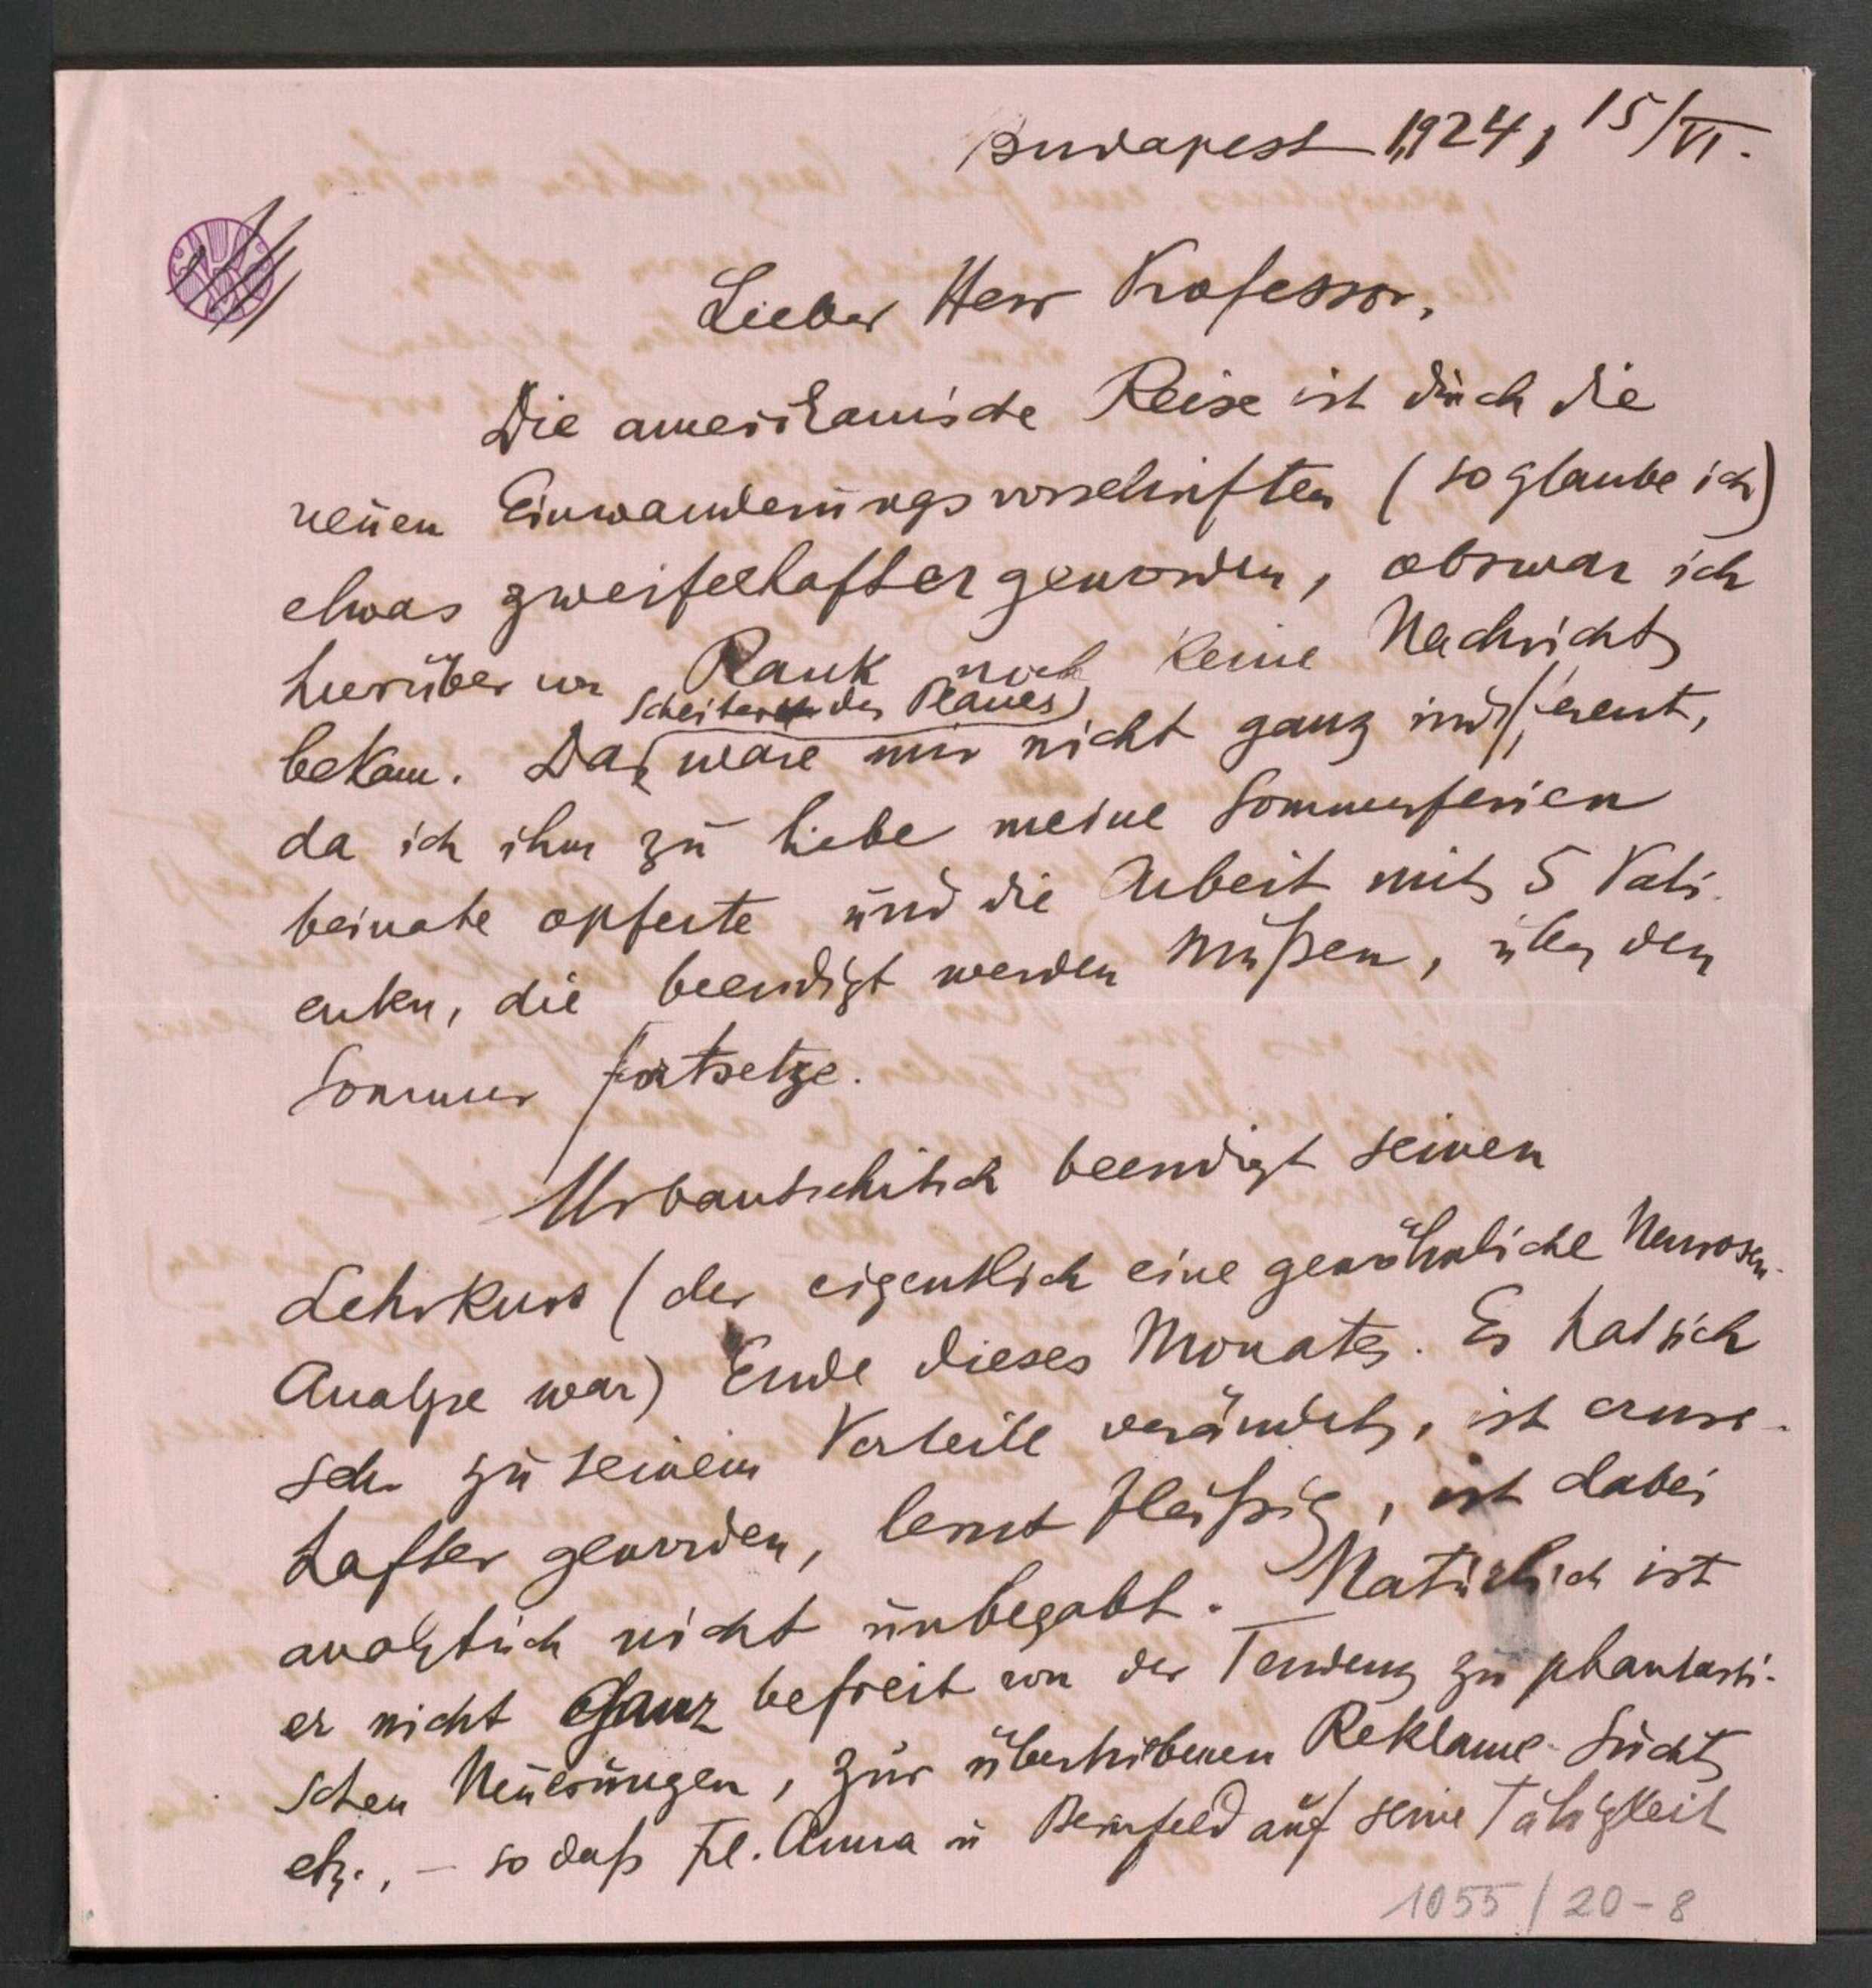 Budapest 1924, 15/VI.
Lieber Herr Professor,
Die amerikanische Reise ist durch die
neuen Einwanderungsvorschriften (so glaube ich)
etwas zweifelhafter geworden, obzwar ich
hierüber von Rank noch keine Nachricht
Scheitern des Planes
bekam. Das wäre mir nicht ganz indifferent,
da ich ihm zu liebe meine Sommerferien
beinahe opferte und die Arbeit mit 5 Pati-
enten, die beendigt werden müßen, über den
Sommer fortsetze.
Urbantschitsch beendigt seinen
Lehrkurs (der eigentlich eine gewöhnliche Neurosen-
Analyse war) Ende dieses Monates. Er hat sich
sehr zu seinem Vorteile verändert, ist ernst-
hafter geworden, lernt fleißig, ist dabei
analytisch nicht unbegabt. Natürlich ist
er nicht Ganz befreit von der Tendenz zu phantasti-
schen Neuerungen, zur übertriebenen Reklame-Sucht
etz., – so daß Frl. Anna u Bernfeld auf seine Tätigkeit
1055/20-8